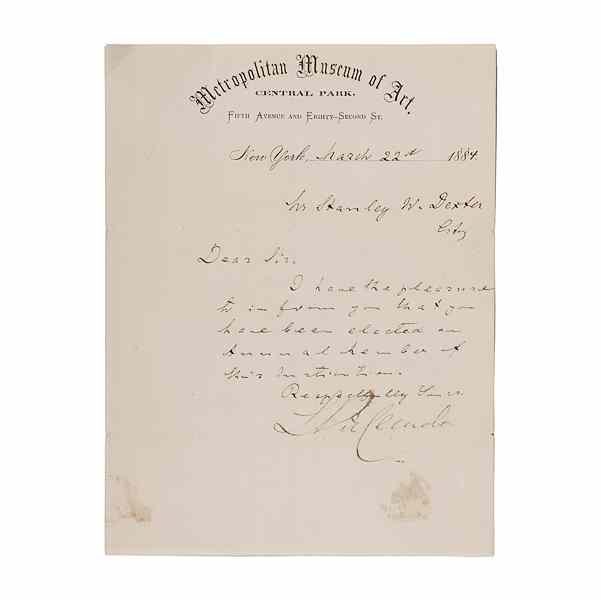 Metropolitan Museum of Art.
CENTRAL PARK,
FIFTH AVENUE AND EIGHTY-SECOND ST.
New York, March 22d 1884
Mr Stanley W. Dexter
City
Dear Sir,
I have the pleasure
to inform you that you
have been elected an
Annual Member of
this Institution.
Respectfully Yours